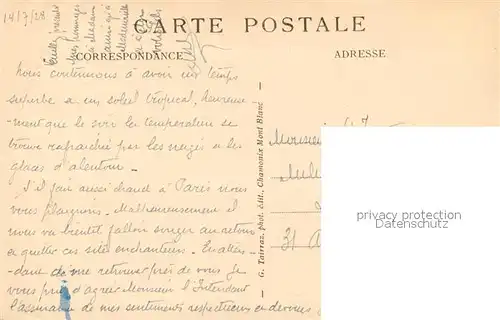 14/7/28
CARTE POSTALE
CORRESPONDANCE
ADRESSE
Veuillez présenter
mes hommages
à Madame
ainsi qu'à
Mademoiselle
Nous continuons à avoir un temps
superbe et un soleil tropical. Heureuse-
-ment que le soir la température se
trouve rafraichie par les neiges et les
glaces d'alentour.
S'il fait aussi chaud à Paris nous
vous plaignons. Malheureusement il
nous va bientôt falloir songer au retour
et quitter ces sites enchanteurs. En atten-
-dant de me retrouver près de vous je
vous prie d'agréer Monsieur l'Intendant
l'assurance de mes sentiments respectueux et dévoués
G. Tairraz, phot. édit., Chamonix Mont Blanc
Monsieur
31
privacy protection
Datenschutz